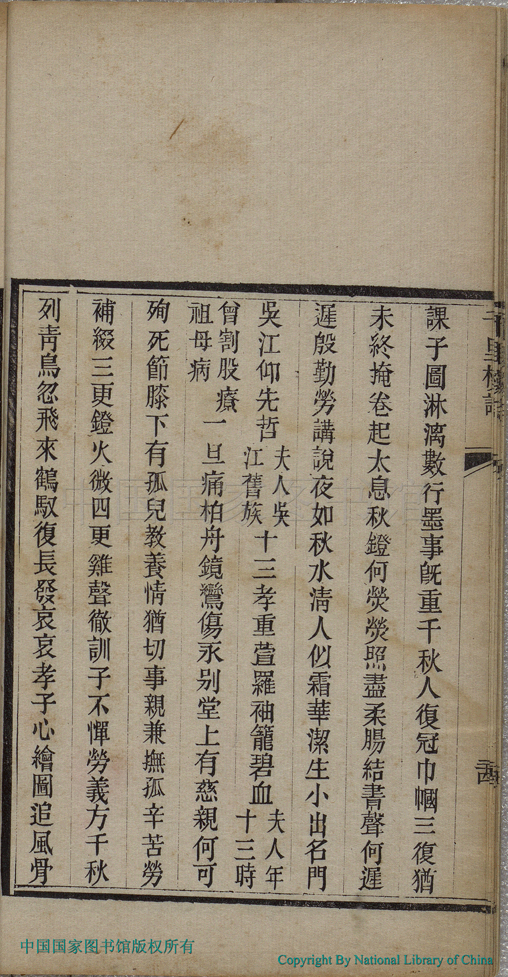 課子圖淋漓數行墨事既重千秋人復冠巾幗三復猶
未終掩卷起太息秋鐙何熒熒照盡柔腸結書聲何遲
遲殷勤勞講說夜如秋水清人似霜華潔生小出名門
吳江仰先哲夫人吳江舊族十三孝重萱羅袖籠碧血夫人年十三時
曾割股療祖母病一旦痛柏舟鏡鸞傷永别堂上有慈親何可
殉死節膝下有孤兒教養情猶切事親兼撫孤辛苦勞
補綴三更鐙火微四更雞聲徹訓子不憚勞義方千秋
列青鳥忽飛來鶴馭復長發哀哀孝子心繪圖追風骨
中国国家图书馆版权所有
Copyright By National Library of China